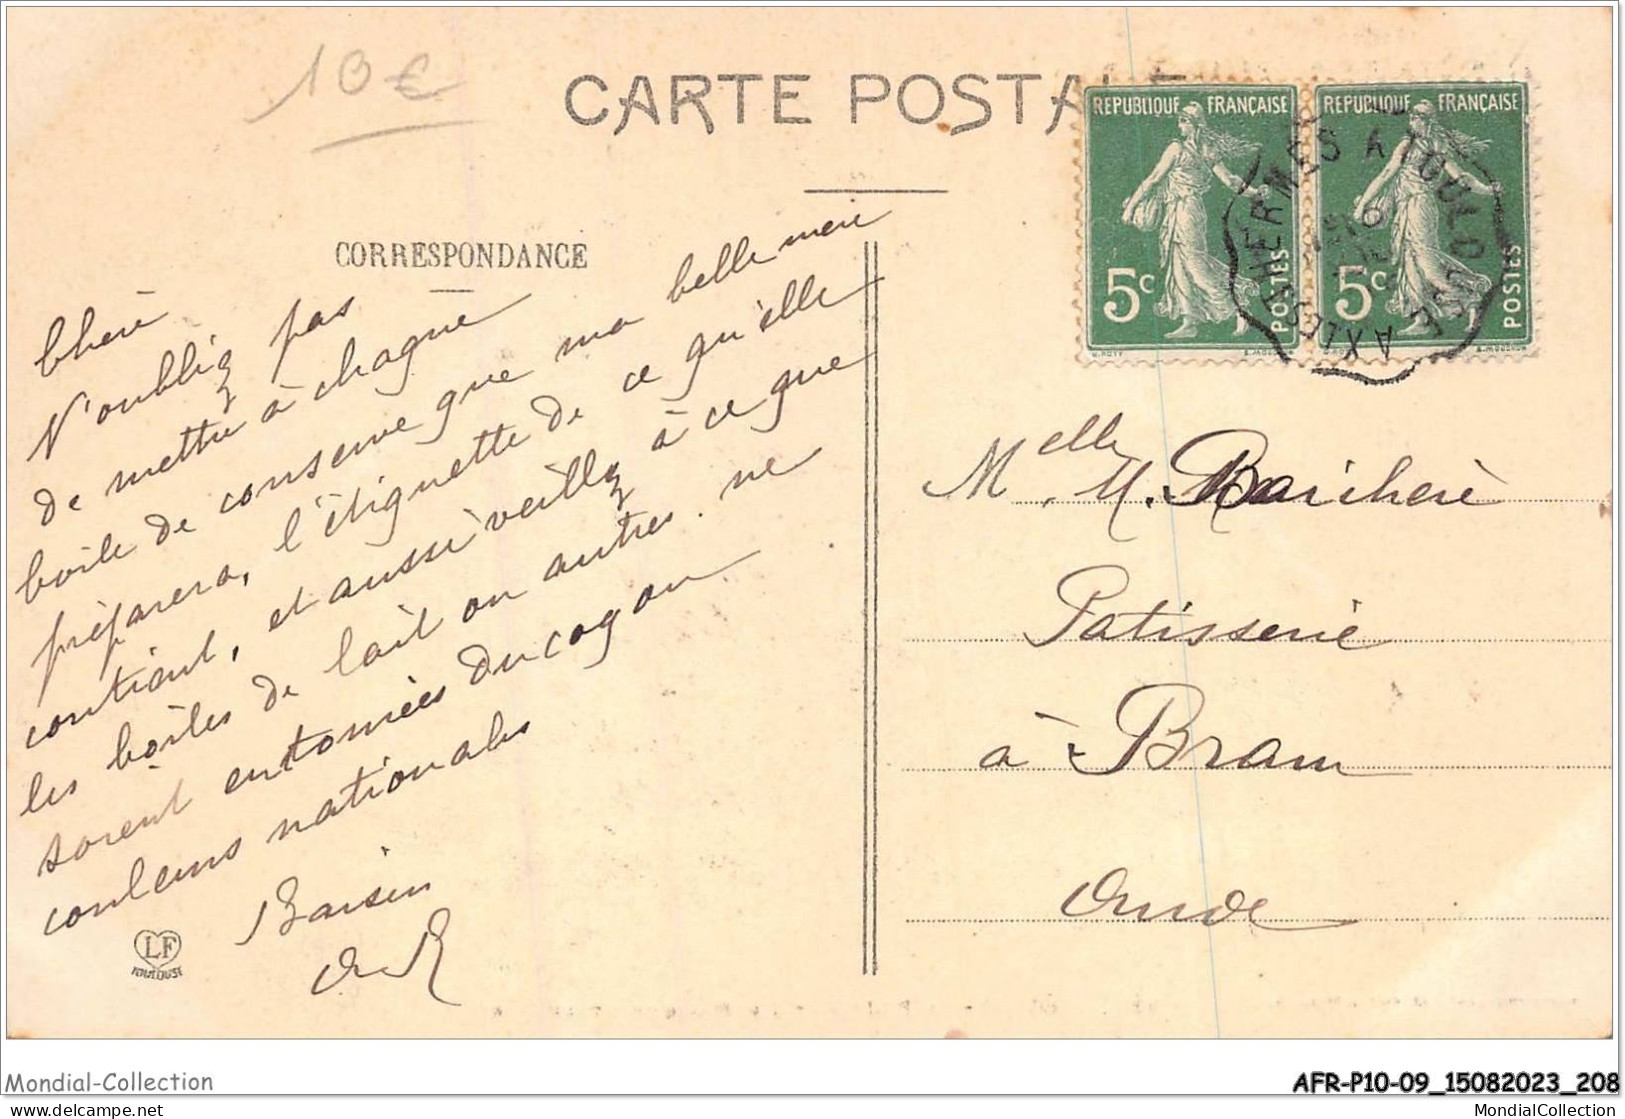 10 €
CARTE POSTALE
REPUBLIQUE FRANÇAISE
5c
POSTES
REPUBLIQUE FRANÇAISE
5c
POSTES
AX LES THERMES A TOULOUSE
CORRESPONDANCE
Chère
N'oubliez pas
de mettre à chaque
boite de conserve que ma belle mère
préparera, l'étiquette de ce qu'elle
contient, et aussi veillez à ce que
les boites de lait ou autres ne
soient entourées du cocon
couleurs nationales
Baisers
LF
TOULOUSE
Melle M. Barichère
Patisserie
à Bram
Aude
Mondial-Collection
AFR-P10-09_15082023_208
https://www.delcampe.net
MondialCollection